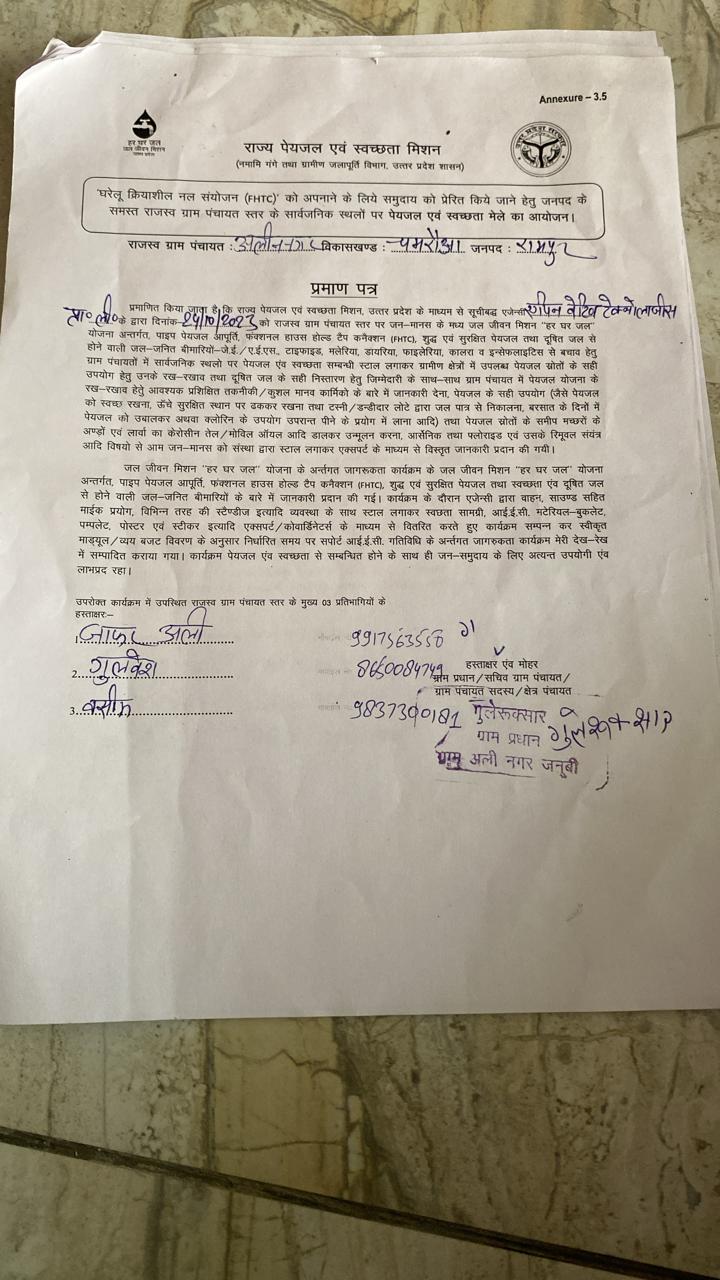 Annexure – 3.5
हर घर जल
जल जीवन मिशन
उत्तर प्रदेश सरकार
राज्य पेयजल एवं स्वच्छता मिशन
(नमामि गंगे तथा ग्रामीण जलापूर्ति विभाग, उत्तर प्रदेश शासन)
'घरेलू क्रियाशील नल संयोजन (FHTC)' को अपनाने के लिये समुदाय को प्रेरित किये जाने हेतु जनपद के
समस्त राजस्व ग्राम पंचायत स्तर के सार्वजनिक स्थलों पर पेयजल एवं स्वच्छता मेले का आयोजन।
राजस्व ग्राम पंचायत : अलीनगर विकासखण्ड : चमरौआ जनपद : रामपुर
प्रमाण पत्र
प्रमाणित किया जाता है कि राज्य पेयजल एवं स्वच्छता मिशन, उत्तर प्रदेश के माध्यम से सूचीबद्ध एजेन्सी
प्रा० ली० के द्वारा दिनांक 24/10/2023 को राजस्व ग्राम पंचायत स्तर पर जन–मानस के मध्य जल जीवन मिशन "हर घर जल"
योजना अन्तर्गत, पाइप पेयजल आपूर्ति, फंक्शनल हाउस होल्ड टैप कनैक्शन (FHTC), शुद्ध एवं सुरक्षित पेयजल तथा दूषित जल से
होने वाली जल–जनित बीमारियों–जे.ई./ए.ई.एस., टाइफाइड, मलेरिया, डायरिया, फाइलेरिया, कालरा व इन्सेफलाइटिस से बचाव हेतु
ग्राम पंचायतों में सार्वजनिक स्थलो पर पेयजल एंव स्वच्छता सम्बन्धी स्टाल लगाकर ग्रामीण क्षेत्रों में उपलब्ध पेयजल स्रोतों के सही
उपयोग हेतु उनके रख–रखाव तथा दूषित जल के सही निस्तारण हेतु जिम्मेदारी के साथ–साथ ग्राम पंचायत में पेयजल योजना के
रख–रखाव हेतु आवश्यक प्रशिक्षित तकनीकी/कुशल मानव कार्मिको के बारे में जानकारी देना, पेयजल के सही उपयोग (जैसे पेयजल
को स्वच्छ रखना, ऊँचे सुरक्षित स्थान पर ढककर रखना तथा टस्नी/डन्डीदार लोटे द्वारा जल पात्र से निकालना, बरसात के दिनों में
पेयजल को उबालकर अथवा क्लोरिन के उपयोग उपरान्त पीने के प्रयोग में लाना आदि) तथा पेयजल स्रोतों के समीप मच्छरों के
अण्डों एवं लार्वा का केरोसीन तेल/मोविल ऑयल आदि डालकर उन्मूलन करना, आर्सेनिक तथा फ्लोराइड एवं उसके रिमूवल संयंत्र
आदि विषयो से आम जन–मानस को संस्था द्वारा स्टाल लगाकर एक्सपर्ट के माध्यम से विस्तृत जानकारी प्रदान की गयी।
जल जीवन मिशन "हर घर जल" योजना के अर्न्तगत जागरूकता कार्यक्रम के जल जीवन मिशन "हर घर जल" योजना
अन्तर्गत, पाइप पेयजल आपूर्ति, फंक्शनल हाउस होल्ड टैप कनैक्शन (FHTC), शुद्ध एवं सुरक्षित पेयजल तथा स्वच्छता एंव दूषित जल
से होने वाली जल–जनित बीमारियों के बारे में जानकारी प्रदान की गई। कार्यक्रम के दौरान एजेन्सी द्वारा वाहन, साउण्ड सहित
माईक प्रयोग, विभिन्न तरह की स्टैण्डीज इत्यादि व्यवस्था के साथ स्टाल लगाकर स्वच्छता सामग्री, आई.ई.सी. मटेरियल–बुकलेट,
पम्पलेट, पोस्टर एवं स्टीकर इत्यादि एक्सपर्ट/कोवार्डिनेटर्स के माध्यम से वितरित करते हुए कार्यक्रम सम्पन्न कर स्वीकृत
माड्यूल/व्यय बजट विवरण के अनुसार निर्धारित समय पर सपोर्ट आई.ई.सी. गतिविधि के अर्न्तगत जागरुकता कार्यक्रम मेरी देख–रेख
में सम्पादित कराया गया। कार्यक्रम पेयजल एंव स्वच्छता से सम्बन्धित होने के साथ ही जन–समुदाय के लिए अत्यन्त उपयोगी एंव
लाभप्रद रहा।
उपरोक्त कार्यक्रम में उपस्थित राजस्व ग्राम पंचायत स्तर के मुख्य 03 प्रतिभागियों के
हस्ताक्षर:–
1. जाफर अली 9917563558
2. गुलवेश 8650084749
3. वसीम 9837390181
हस्ताक्षर एंव मोहर
ग्राम प्रधान/सचिव ग्राम पंचायत/
ग्राम पंचायत सदस्य/क्षेत्र पंचायत
गुलेरूक्सार
ग्राम प्रधान
ग्राम अली नगर जनूबी